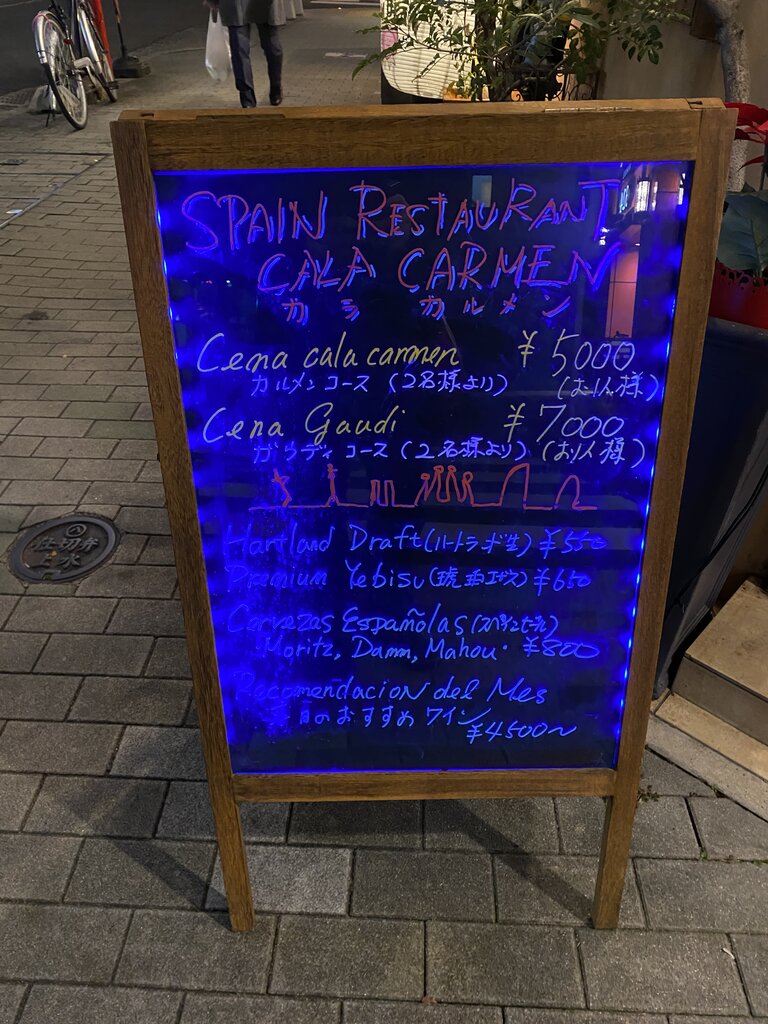 SPAIN RESTAURANT
CALA CARMEN
カラ カルメン
Cena cala carmen ¥5000
カルメンコース (2名様より) (お1人様)
Cena Gaudi ¥7000
ガウディコース (2名様より) (お1人様)
Hartland Draft (ハートランド生) ¥550
Premium Yebisu (琥珀エビス) ¥650
Cervezas Españolas (スペインビール)
Moritz, Damm, Mahou. ¥800
Recomendacion del Mes
今月のおすすめワイン
¥4500〜